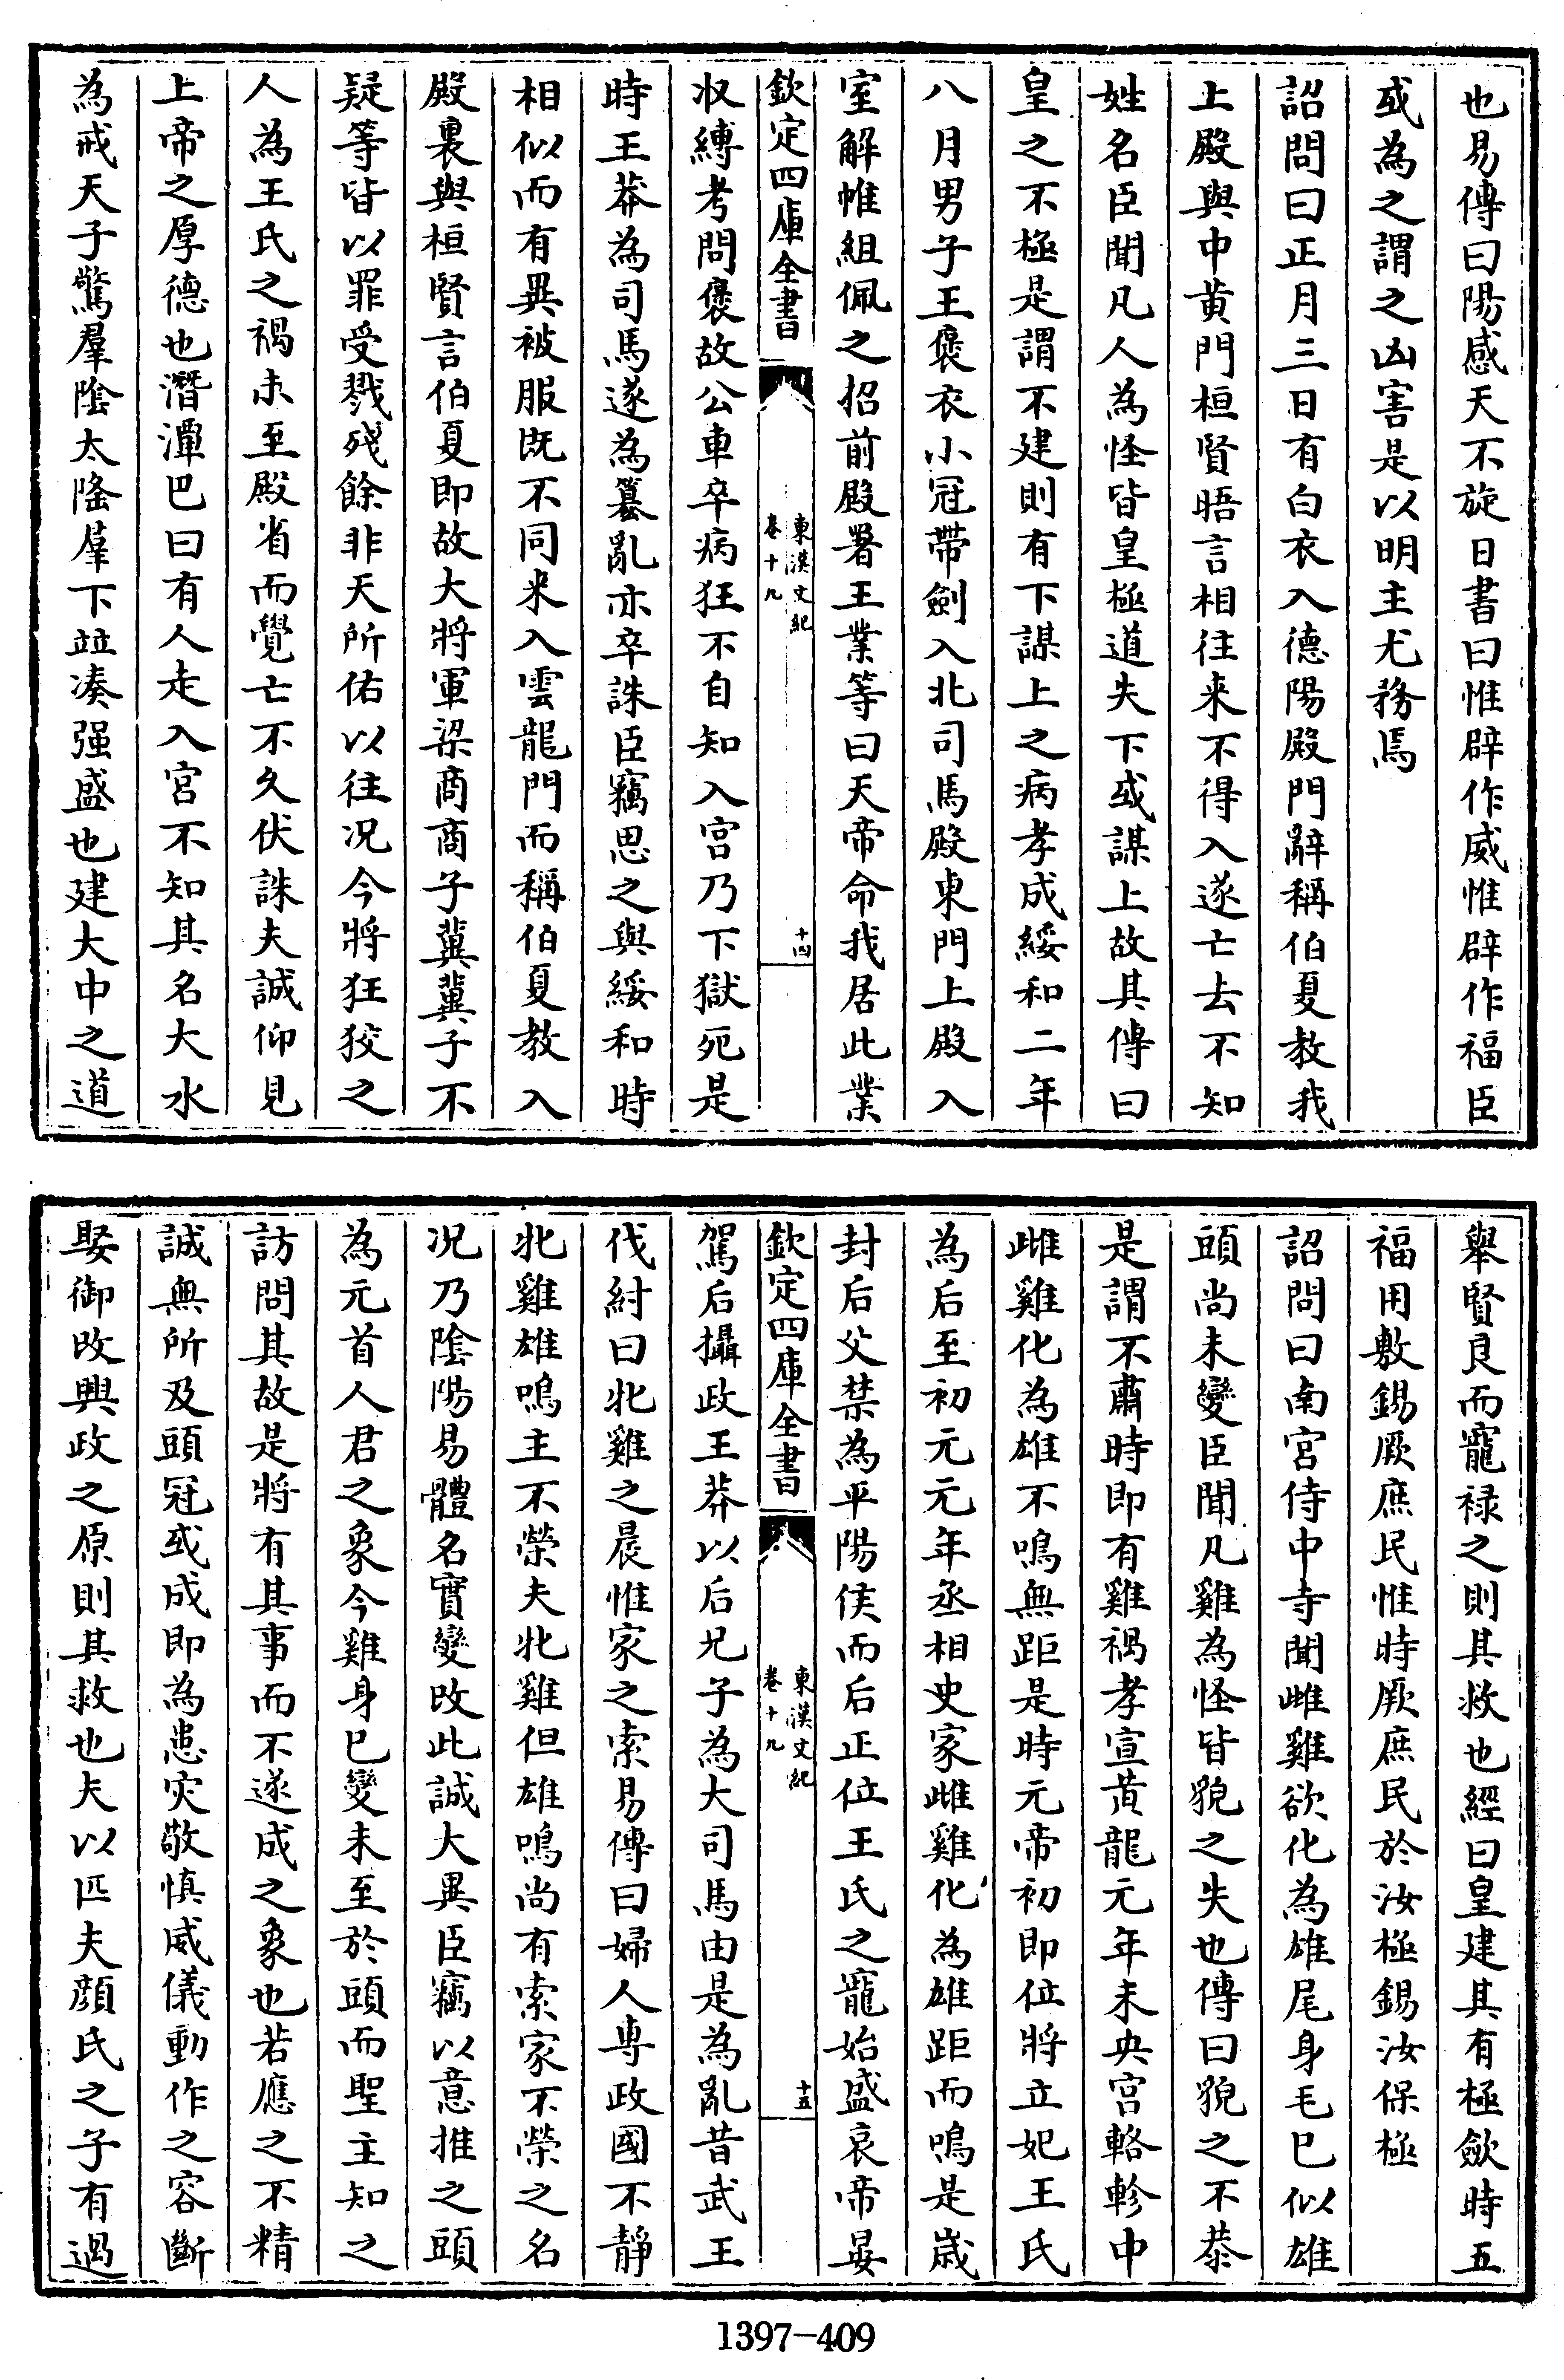 也易傳曰陽感天不旋日書曰惟辟作威惟辟作福臣
或為之謂之凶害是以明主尤務焉
詔問曰正月三日有白衣入德陽殿門辭稱伯夏教我
上殿與中黄門桓賢晤言相往来不得入遂亡去不知
姓名臣聞凡人為怪皆皇極道失下或謀上故其傳曰
皇之不極是謂不建則有下謀上之病孝成綏和二年
八月男子王褒衣小冠帶劍入北司馬殿東門上殿入
室解帷組佩之招前殿署王業等曰天帝命我居此業
欽定四庫全書
東漢文紀
卷十九
十四
收縛考問褒故公車卒病狂不自知入宫乃下獄死是
時王莽為司馬遂為簒亂亦卒誅臣竊思之與綏和時
相似而有異被服既不同来入雲龍門而稱伯夏教入
殿裏與桓賢言伯夏即故大將軍梁商商子冀冀子不
疑等皆以罪受戮殘餘非天所佑以往况今將狂狡之
人為王氏之禍未至殿省而覺亡不久伏誅夫誠仰見
上帝之厚德也潛潭巴曰有人走入宫不知其名大水
為戒天子驚羣陰太隆羣下竝凑强盛也建大中之道
舉賢良而寵禄之則其救也經曰皇建其有極斂時五
福用敷錫厥庶民惟時厥庶民於汝極錫汝保極
詔問曰南宫侍中寺聞雌雞欲化為雄尾身毛已似雄
頭尚未變臣聞凡雞為怪皆貌之失也傳曰貌之不恭
是謂不肅時即有雞禍孝宣黄龍元年未央宫輅軫中
雌雞化為雄不鳴無距是時元帝初即位將立妃王氏
為后至初元元年丞相史家雌雞化為雄距而鳴是歲
封后父禁為平陽侯而后正位王氏之寵始盛哀帝晏
欽定四庫全書
東漢文紀
卷十九
十五
駕后攝政王莽以后兄子為大司馬由是為亂昔武王
伐紂曰牝雞之晨惟家之索易傳曰婦人專政國不靜
牝雞雄鳴主不榮夫牝雞但雄鳴尚有索家不榮之名
况乃陰陽易體名實變改此誠大異臣竊以意推之頭
為元首人君之象今雞身已變未至於頭而聖主知之
訪問其故是將有其事而不遂成之象也若應之不精
誠無所及頭冠或成即為患灾敬慎威儀動作之容斷
娶御改興政之原則其救也夫以匹夫顔氏之子有過
1397-409